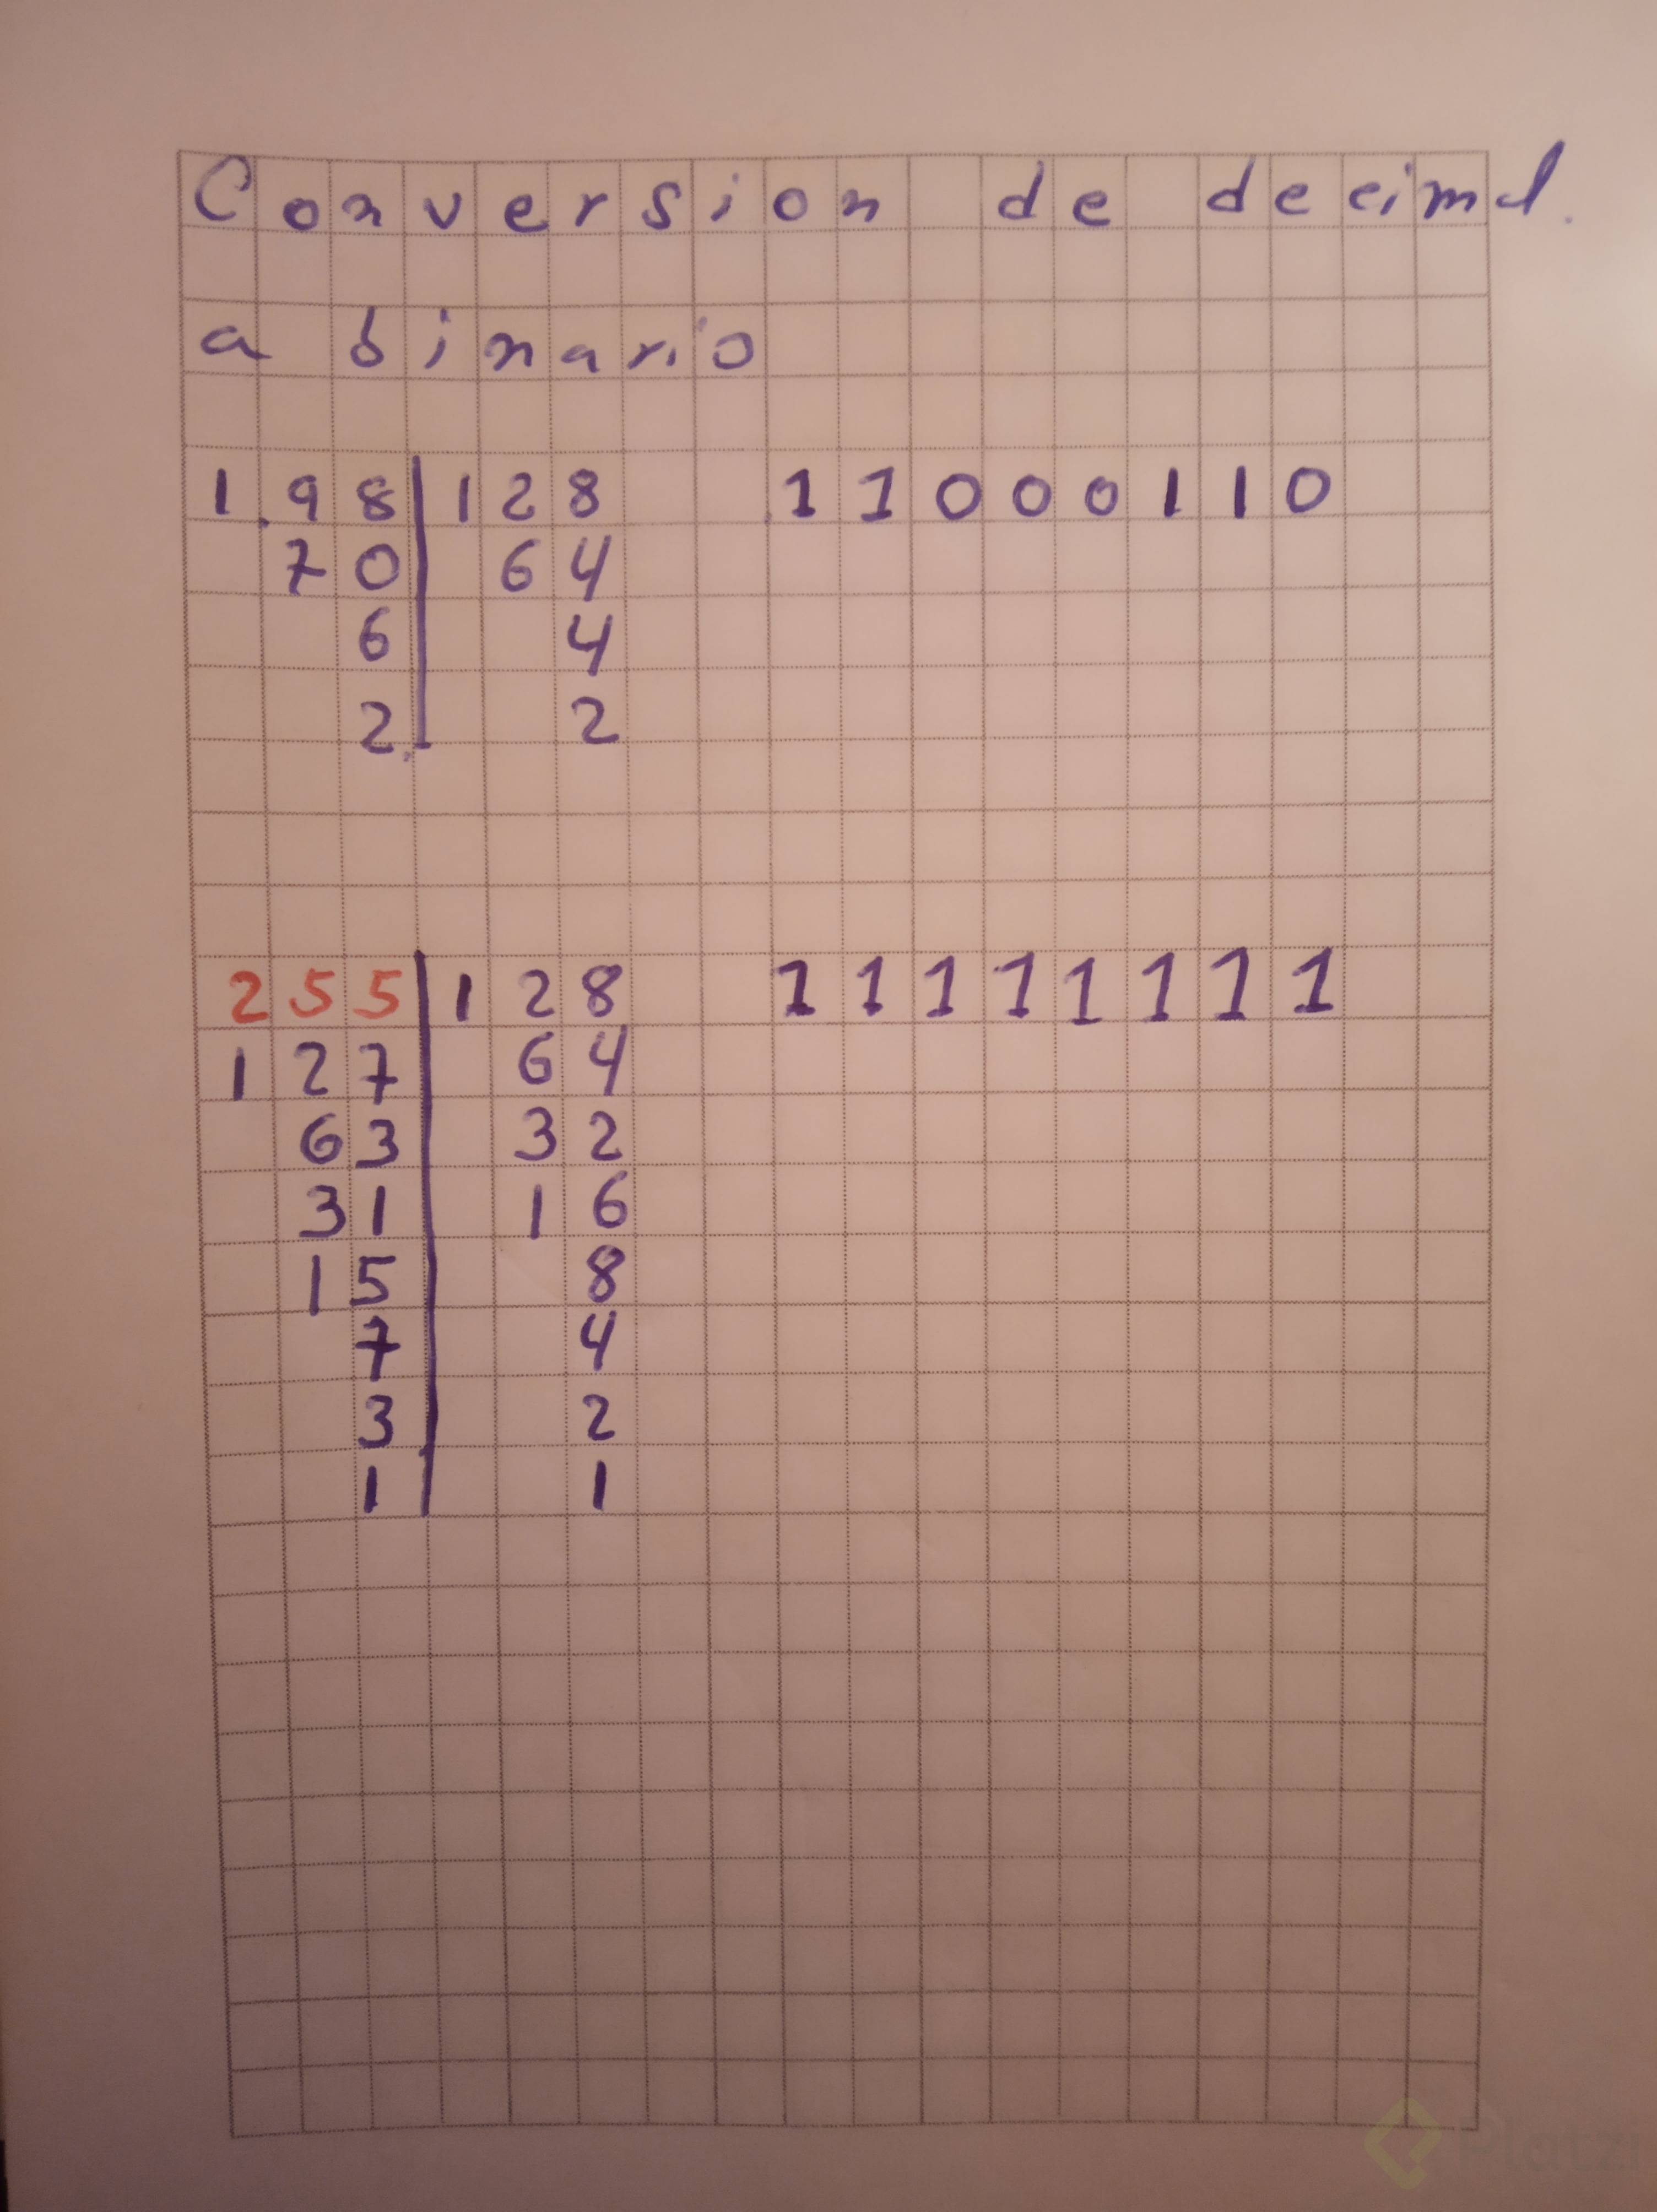 Conversion de decimal.
a binario
198 | 128 11000110
70 | 64
6 | 4
2 | 2
255 | 128 11111111
127 | 64
63 | 32
31 | 16
15 | 8
7 | 4
3 | 2
1 | 1
Platzi